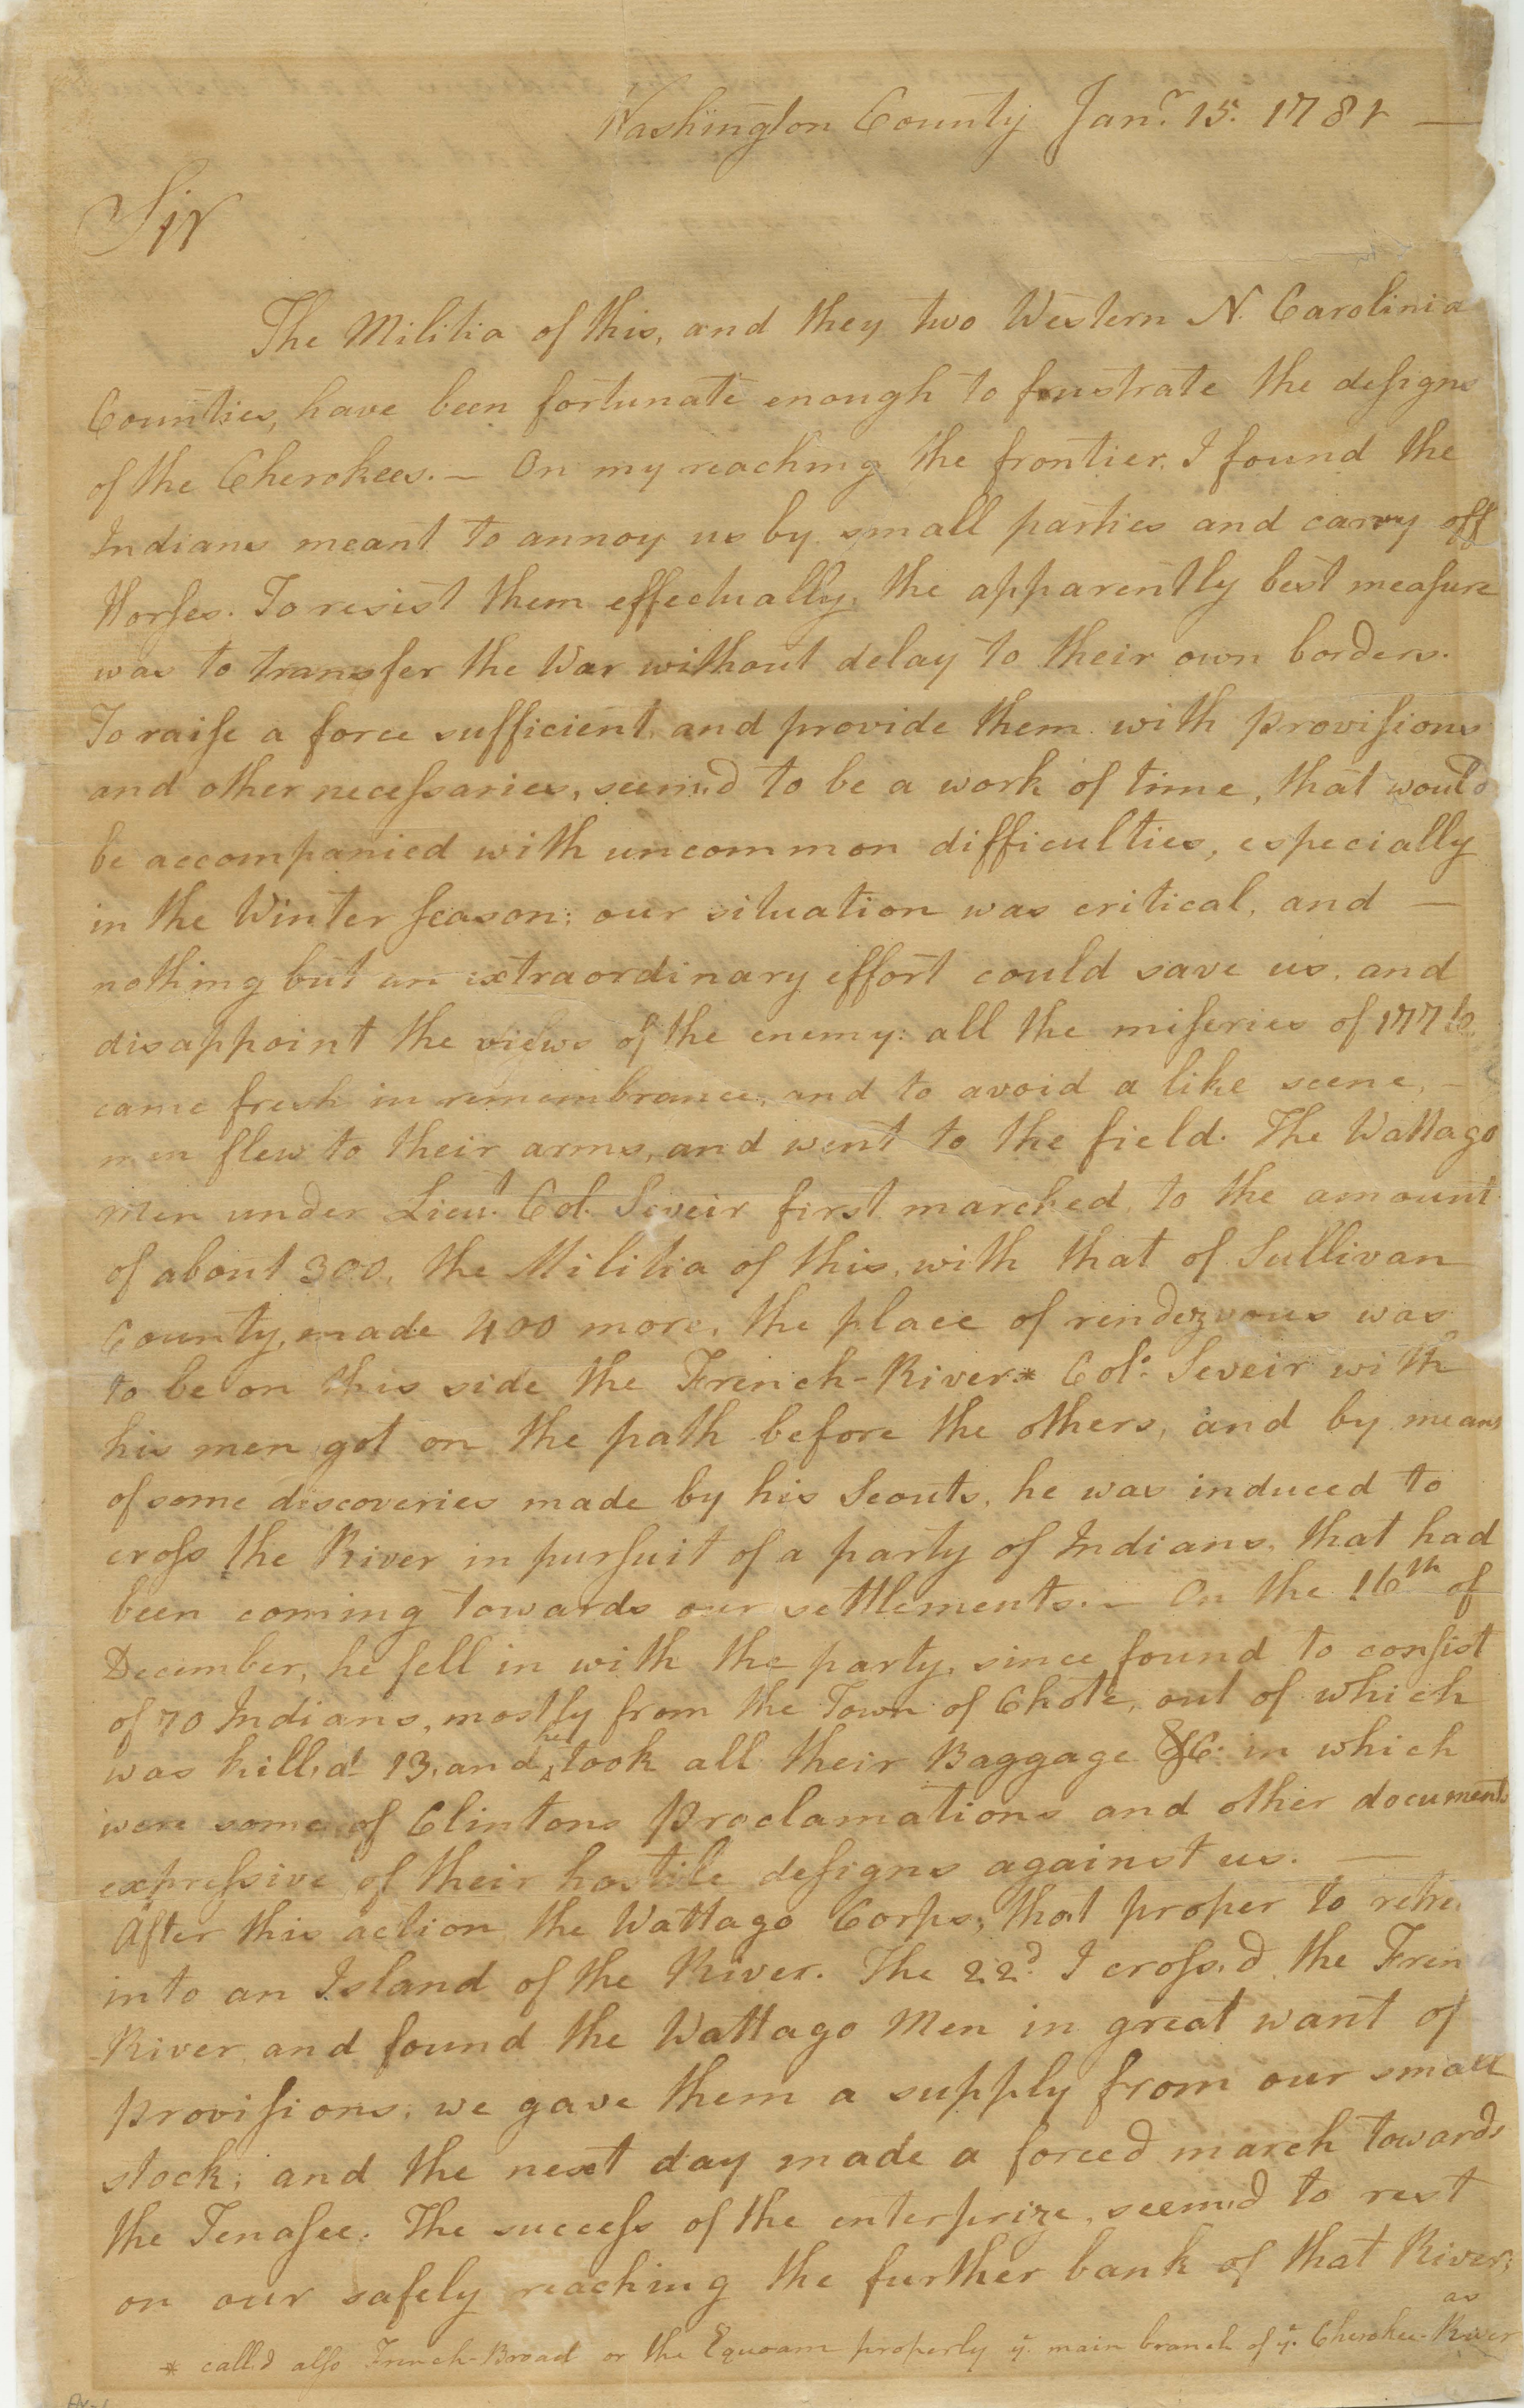 Washington County Janr. 15. 1781 —
Sir
The Militia of this, and they two Western N. Carolinia
Counties, have been fortunate enough to frustrate the designs
of the Cherokees. — On my reaching the frontier, I found the
Indians meant to annoy us by small parties and carry off
Horses. To resist them effectually, the apparently best measure
was to transfer the War without delay to their own borders.
To raise a force sufficient, and provide them with provisions
and other necessaries, seem'd to be a work of time, that would
be accompanied with uncommon difficulties, especially
in the Winter season: our situation was critical, and —
nothing but an extraordinary effort could save us, and
disappoint the views of the enemy: all the miseries of 1776
came fresh in remembrance, and to avoid a like scene, —
men flew to their arms, and went to the field. The Wattago
Men under Lieut. Col. Seveir first marched, to the amount
of about 300, the Militia of this, with that of Sullivan
County, made 400 more, the place of rendezvous was
to be on this side the French-River* Colo. Seveir with
his men got on the path before the others, and by means
of some discoveries made by his Scouts, he was induced to
cross the River in pursuit of a party of Indians, that had
been coming towards our settlements. — On the 16th of
December, he fell in with the party, since found to consist
of 70 Indians, mostly from the Town of Chote, out of which
was kill'd 13, and he took all their Baggage &C. in which
were some of Clintons Proclamations and other documents
expressive of their hostile designs against us. —
After this action, the Wattago Corps, thot proper to retre
into an Island of the River. The 22d. I cross'd the Fren
River, and found the Wattago Men in great want of
provisions, we gave them a supply from our small
stock; and the next day made a forced march towards
the Tenasee: The success of the enterprize, seem'd to rest
on our safely reaching the further bank of that River;
as
* call'd also French-Broad or the Equoam properly ye. main branch of ye. Cherokee-River